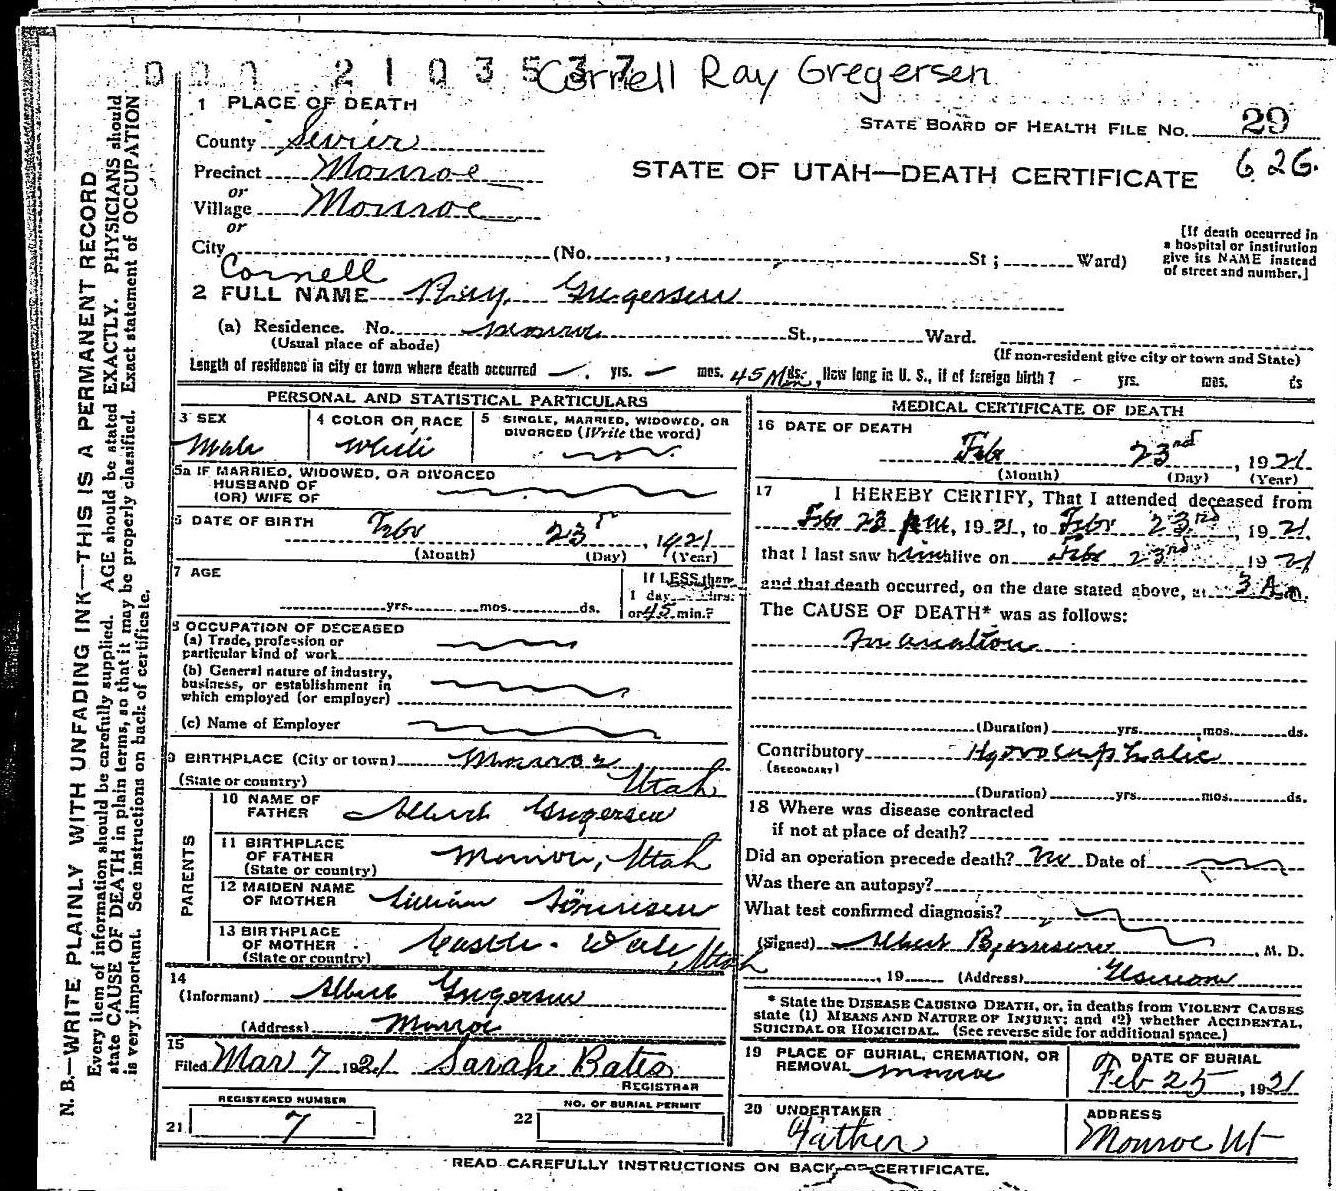 0 0 0 2 1 0 3 5 3 7 Cornell Ray Gregersen
1 PLACE OF DEATH
STATE BOARD OF HEALTH FILE No. 29
County Sevier
Precinct Monroe
STATE OF UTAH—DEATH CERTIFICATE 626.
or
Village Monroe
or
City (No. , St ; Ward)
[If death occurred in a hospital or institution give its NAME instead of street and number.]
Cornell
2 FULL NAME Ray Gregersen
(a) Residence. No. Monroe St., Ward.
(Usual place of abode) (If non-resident give city or town and State)
Length of residence in city or town where death occurred — yrs. — mos. 45 Min ds. How long in U. S., if of foreign birth? - yrs. mos. ds
PERSONAL AND STATISTICAL PARTICULARS
3 SEX Male
4 COLOR OR RACE White
5 SINGLE, MARRIED, WIDOWED, OR DIVORCED (Write the word)
5a IF MARRIED, WIDOWED, OR DIVORCED
HUSBAND OF
(OR) WIFE OF
6 DATE OF BIRTH Febr 23 , 1921
(Month) (Day) (Year)
7 AGE yrs. mos. ds.
If LESS than 1 day hrs. or 45 min.?
8 OCCUPATION OF DECEASED
(a) Trade, profession or particular kind of work
(b) General nature of industry, business, or establishment in which employed (or employer)
(c) Name of Employer
9 BIRTHPLACE (City or town) Monroe
(State or country) Utah
PARENTS
10 NAME OF FATHER Albert Gregersen
11 BIRTHPLACE OF FATHER (State or country) Monroe, Utah
12 MAIDEN NAME OF MOTHER Lillian Sörensen
13 BIRTHPLACE OF MOTHER (State or country) Castle Dale, Utah
14
(Informant) Albert Gregersen
(Address) Monroe
15
Filed Mar 7 1921 Sarah Bates
REGISTRAR
21 REGISTERED NUMBER 7
22 NO. OF BURIAL PERMIT
MEDICAL CERTIFICATE OF DEATH
16 DATE OF DEATH
Feb 23nd , 1921
(Month) (Day) (Year)
17 I HEREBY CERTIFY, That I attended deceased from
Feb 23 , 1921, to Febr 23rd 1921
that I last saw him alive on Feb 23nd 1921
and that death occurred, on the date stated above, at 3 A.m.
The CAUSE OF DEATH* was as follows:
Inanation
(Duration) yrs. mos. ds.
Contributory Hydrocephalic
(SECONDARY)
(Duration) yrs. mos. ds.
18 Where was disease contracted
if not at place of death?
Did an operation precede death? No Date of
Was there an autopsy?
What test confirmed diagnosis?
(Signed) Albert , M. D.
, 19 (Address)
* State the DISEASE CAUSING DEATH, or, in deaths from VIOLENT CAUSES
state (1) MEANS AND NATURE OF INJURY; and (2) whether ACCIDENTAL,
SUICIDAL OR HOMICIDAL. (See reverse side for additional space.)
19 PLACE OF BURIAL, CREMATION, OR REMOVAL Monroe
DATE OF BURIAL
Feb 25 , 1921
20 UNDERTAKER
Father
ADDRESS
Monroe Ut
READ CAREFULLY INSTRUCTIONS ON BACK OF CERTIFICATE.
N. B.—WRITE PLAINLY WITH UNFADING INK—THIS IS A PERMANENT RECORD
Every item of information should be carefully supplied. AGE should be stated EXACTLY. PHYSICIANS should
state CAUSE OF DEATH in plain terms, so that it may be properly classified. Exact statement of OCCUPATION
is very important. See instructions on back of certificate.